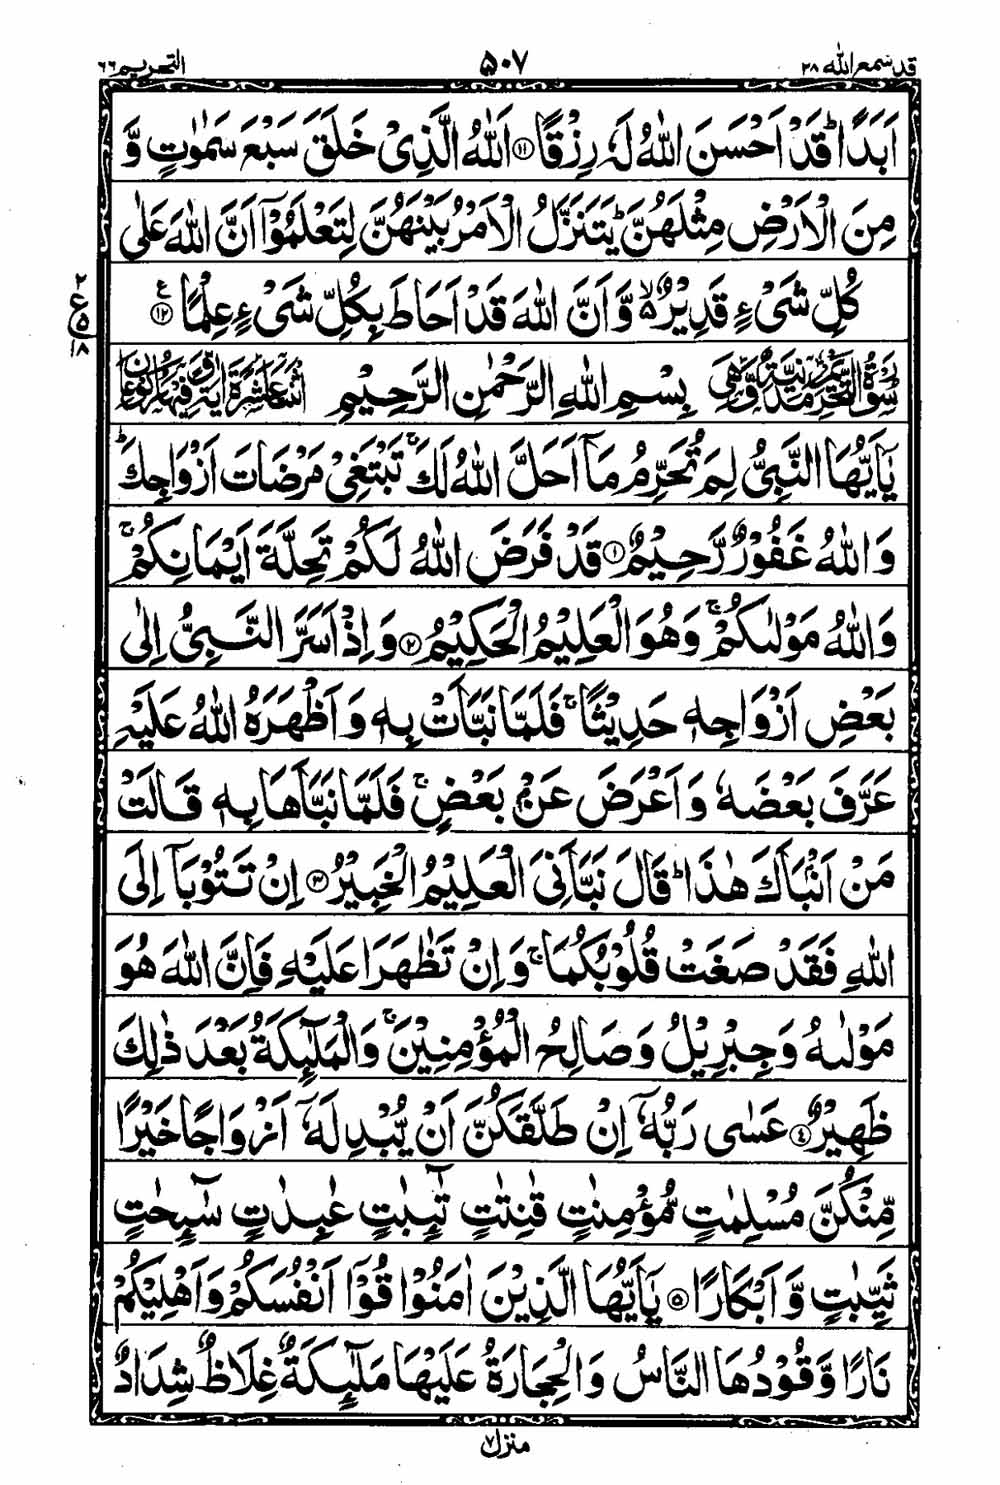 قد سمع الله ٢٨ ۵۰۷ التحريم ٦٦
اَبَدًا ؕ قَدْ اَحْسَنَ اللّٰهُ لَهٗ رِزْقًا ۝۱۱ اَللّٰهُ الَّذِیْ خَلَقَ سَبْعَ سَمٰوٰتٍ وَّ
مِنَ الْاَرْضِ مِثْلَهُنَّ ؕ یَتَنَزَّلُ الْاَمْرُ بَیْنَهُنَّ لِتَعْلَمُوْۤا اَنَّ اللّٰهَ عَلٰی
كُلِّ شَیْءٍ قَدِیْرٌ ۙ۬ وَّ اَنَّ اللّٰهَ قَدْ اَحَاطَ بِكُلِّ شَیْءٍ عِلْمًا ۝۱۲ ع
٢ ع ۵ ۱۸
سُوْرَةُ التَّحْرِیْمِ مَدَنِیَّةٌ وَّهِیَ بِسْمِ اللّٰهِ الرَّحْمٰنِ الرَّحِیْمِ اثْنَتَا عَشْرَةَ اٰیَةً وَّفِیْهَا رُكُوْعَانِ
یٰۤاَیُّهَا النَّبِیُّ لِمَ تُحَرِّمُ مَاۤ اَحَلَّ اللّٰهُ لَكَ ۚ تَبْتَغِیْ مَرْضَاتَ اَزْوَاجِكَ ؕ
وَ اللّٰهُ غَفُوْرٌ رَّحِیْمٌ ۝۱ قَدْ فَرَضَ اللّٰهُ لَكُمْ تَحِلَّةَ اَیْمَانِكُمْ ۚ
وَ اللّٰهُ مَوْلٰىكُمْ ۚ وَ هُوَ الْعَلِیْمُ الْحَكِیْمُ ۝۲ وَ اِذْ اَسَرَّ النَّبِیُّ اِلٰی
بَعْضِ اَزْوَاجِهٖ حَدِیْثًا ۚ فَلَمَّا نَبَّاَتْ بِهٖ وَ اَظْهَرَهُ اللّٰهُ عَلَیْهِ
عَرَّفَ بَعْضَهٗ وَ اَعْرَضَ عَنْۢ بَعْضٍ ۚ فَلَمَّا نَبَّاَهَا بِهٖ قَالَتْ
مَنْ اَنْۢبَاَكَ هٰذَا ؕ قَالَ نَبَّاَنِیَ الْعَلِیْمُ الْخَبِیْرُ ۝۳ اِنْ تَتُوْبَاۤ اِلَی
اللّٰهِ فَقَدْ صَغَتْ قُلُوْبُكُمَا ۚ وَ اِنْ تَظٰهَرَا عَلَیْهِ فَاِنَّ اللّٰهَ هُوَ
مَوْلٰىهُ وَ جِبْرِیْلُ وَ صَالِحُ الْمُؤْمِنِیْنَ ۚ وَ الْمَلٰٓىِٕكَةُ بَعْدَ ذٰلِكَ
ظَهِیْرٌ ۝۴ عَسٰی رَبُّهٗۤ اِنْ طَلَّقَكُنَّ اَنْ یُّبْدِلَهٗۤ اَزْوَاجًا خَیْرًا
مِّنْكُنَّ مُسْلِمٰتٍ مُّؤْمِنٰتٍ قٰنِتٰتٍ تٰٓىِٕبٰتٍ عٰبِدٰتٍ سٰٓىِٕحٰتٍ
ثَیِّبٰتٍ وَّ اَبْكَارًا ۝۵ یٰۤاَیُّهَا الَّذِیْنَ اٰمَنُوْا قُوْۤا اَنْفُسَكُمْ وَ اَهْلِیْكُمْ
نَارًا وَّ قُوْدُهَا النَّاسُ وَ الْحِجَارَةُ عَلَیْهَا مَلٰٓىِٕكَةٌ غِلَاظٌ شِدَادٌ
منزل ۷